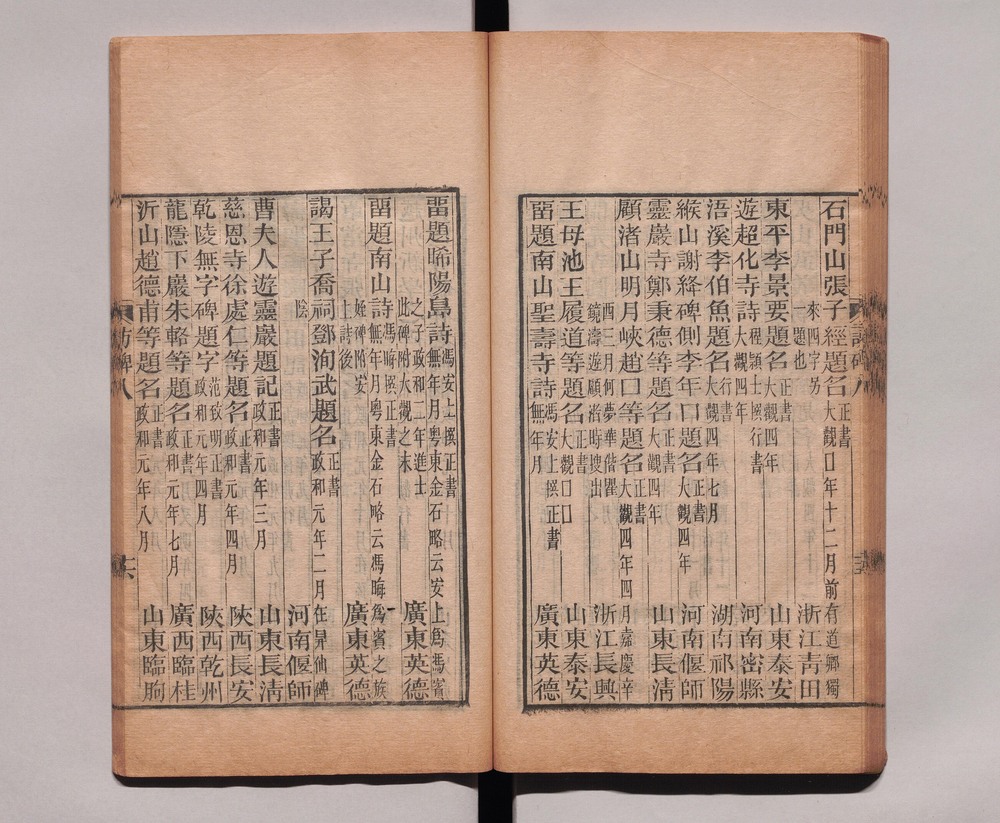 石門山張子經題名正書大觀口年十二月前有道鄉獨
來四字另一題也
浙江青田
東平李景要題名正書大觀四年
山東泰安
遊超化寺詩程頴士撰行書大觀四年
河南密縣
浯溪李伯魚題名行書大觀四年七月
湖南祁陽
緱山謝絳碑側李年口題名正書大觀四年
河南偃師
靈巖寺鄭秉德等題名正書大觀四年
山東長清
顧渚山明月峽趙口等題名正書大觀四年四月嘉慶辛
酉三月何夢華偕瞿鏡濤遊顧渚時搜出
浙江長興
王母池王履道等題名正書大觀口口
山東泰安
畱題南山聖壽寺詩馮安上撰正書無年月
廣東英德
畱題晞陽島詩馮安上撰正書無年月粵東金石略云安上爲馮賓
之子政和二年進士此碑附大觀之末
廣東英德
畱題南山詩馮晦撰正書無年月粵東金石略云馮晦爲賓之族
姪碑附安上詩後
廣東英德
謁王子喬祠鄧洵武題名正書政和元年二月在昇仙碑
陰
河南偃師
曹夫人遊靈巖題記正書政和元年三月
山東長清
慈恩寺徐處仁等題名正書政和元年四月
陝西長安
乾陵無字碑題字范致明正書政和元年四月
陝西乾州
龍隱下巖朱輅等題名正書政和元年七月
廣西臨桂
沂山趙德甫等題名正書政和元年八月
山東臨朐
訪碑八
六